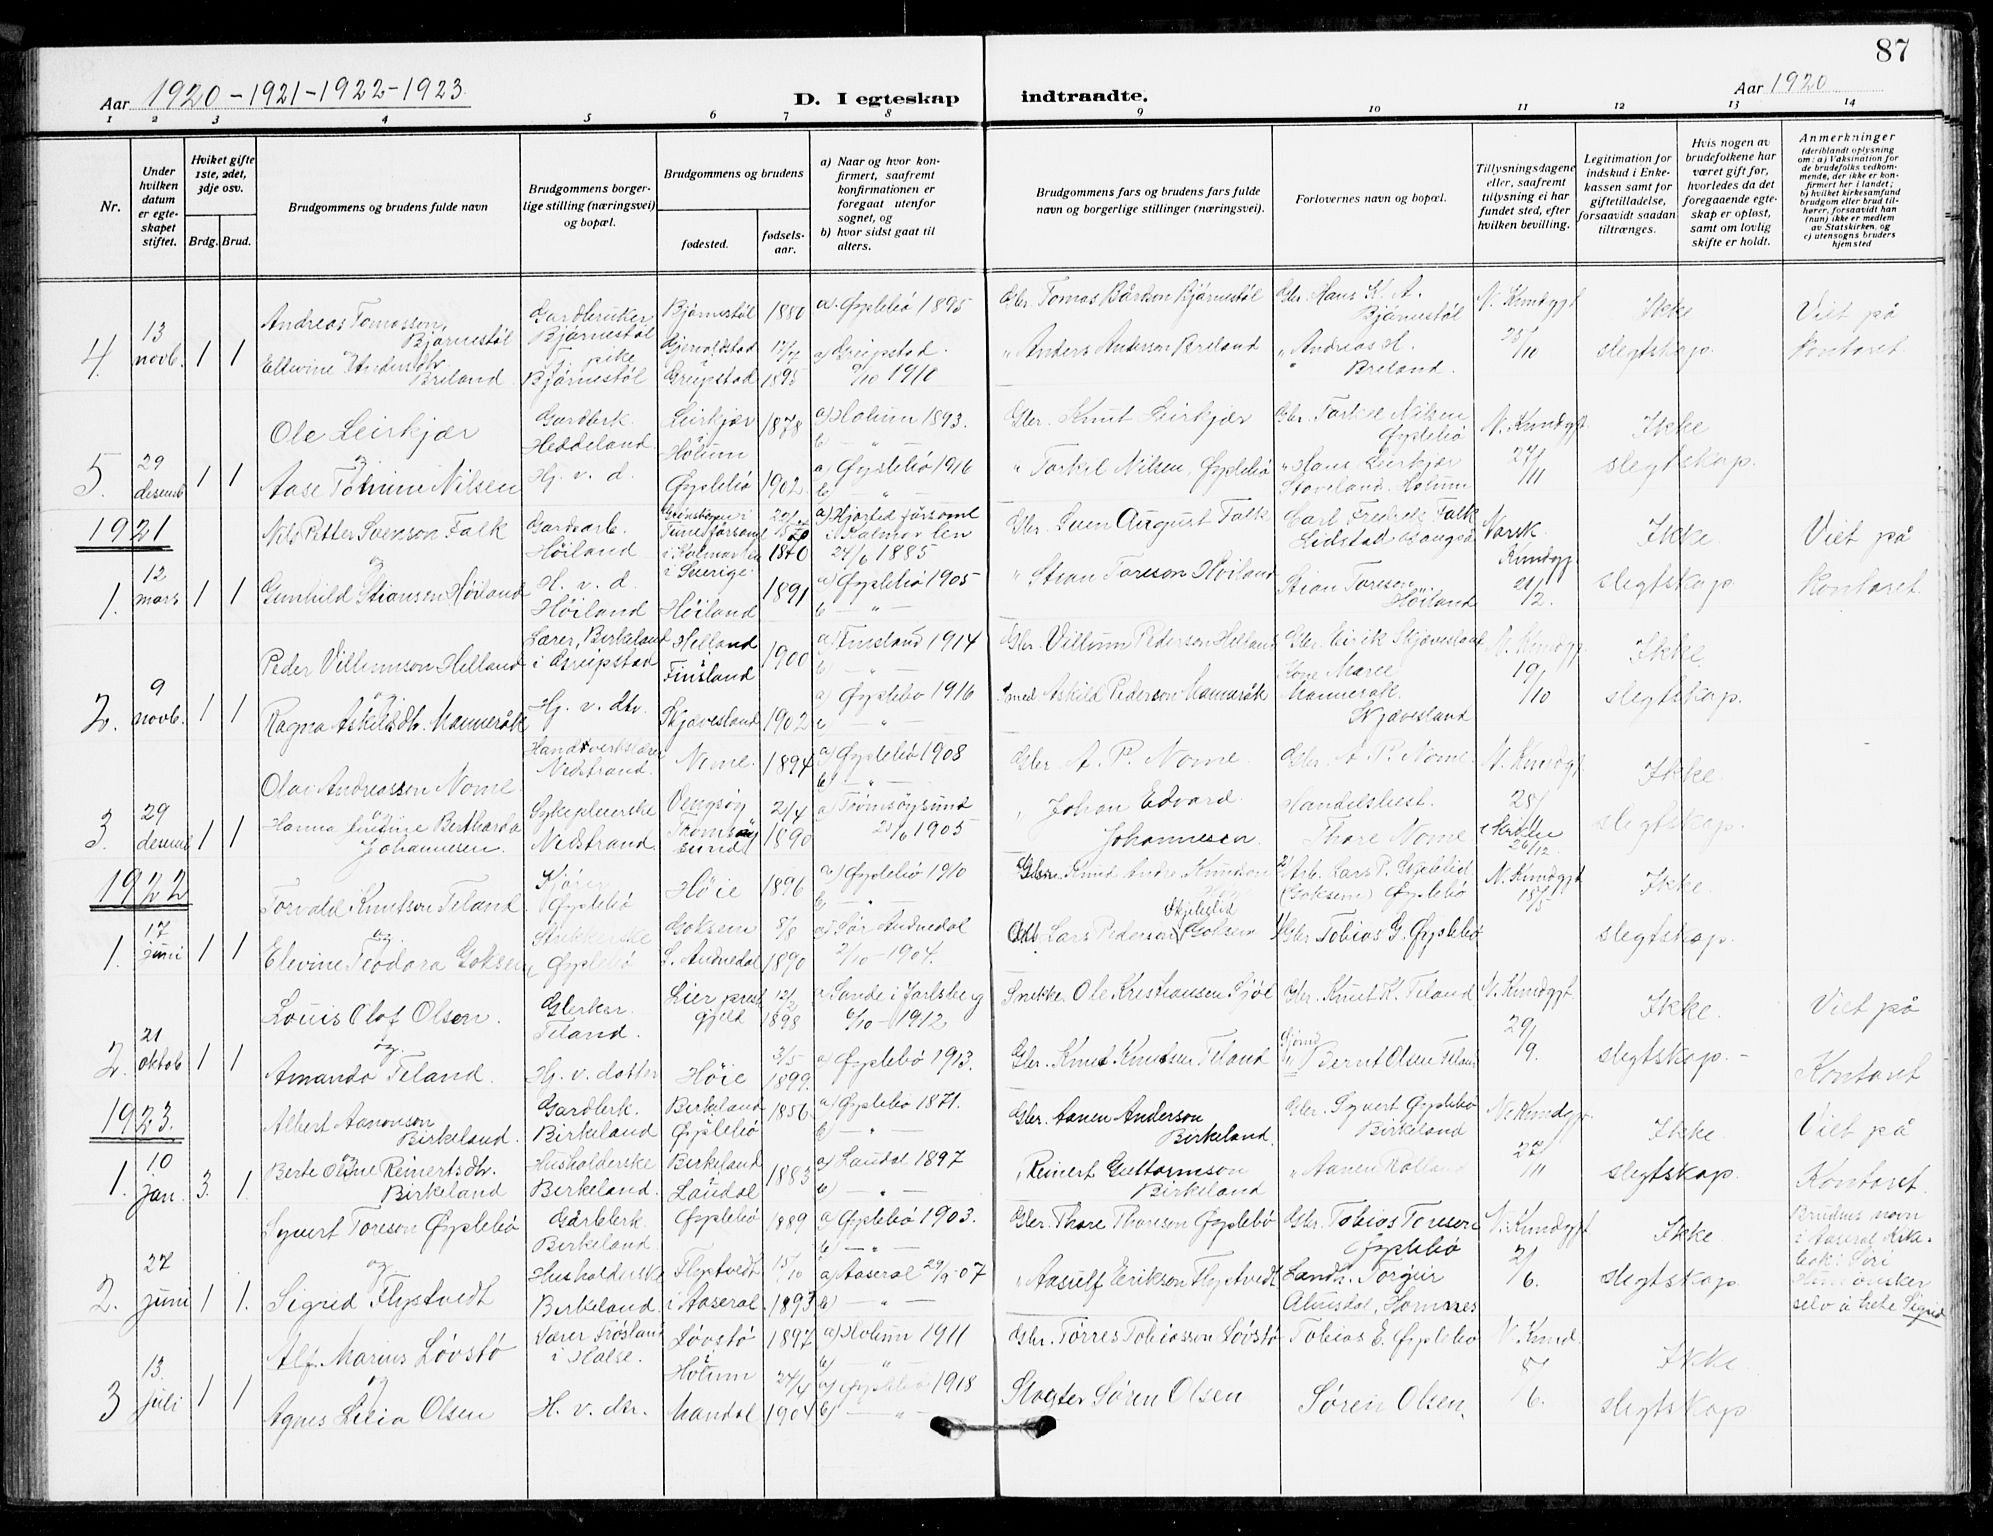 87
Aar 1920-1921-1922-1923.
D. I egteskap indtraadte.
Aar 1920
1 2 3 4 5 6 7 8 9 10 11 12 13 14
Nr.
Under hvilken datum er egteskapet stiftet.
Hviket gifte 1ste, 2det, 3dje osv.
Brdg. Brud.
Brudgommens og brudens fulde navn
Brudgommens borgerlige stilling (næringsvei) og bopæl.
Brudgommens og brudens
fødested.
fødselsaar.
a) Naar og hvor konfirmert, saafremt konfirmationen er foregaat utenfor sognet, og
b) hvor sidst gaat til alters.
Brudgommens fars og brudens fars fulde navn og borgerlige stillinger (næringsvei).
Forlovernes navn og bopæl.
Tillysningsdagene eller, saafremt tillysning ei har fundet sted, efter hvilken bevilling.
Legitimation for indskud i Enkekassen samt for giftetilladelse, forsaavidt saadan tiltrænges.
Hvis nogen av brudefolkene har været gift før, hvorledes da det foregaaende egteskap er opløst, samt om lovlig skifte er holdt.
Anmerkninger
(deriblandt oplysning om: a) Vaksination for de brudefolks vedkommende, der ikke er konfirmert her i landet; b) hvilket kirkesamfund brudgom eller brud tilhører, forsaavidt han (hun) ikke er medlem av Statskirken, og c) utensogns bruders hjemsted
4. 13 novb. 1 1
Andreas Tomasson Bjørnestøl
og
Andersdtr. Breland
Gardbruker Bjørnestøl
pike Bjørnestøl
Bjørnestøl 1880
Greipstad 17/7 1895
a) Øyslebø 1895
a) Greipstad 9/10 1910
Gbr. Tomas Bårdson Bjørnestøl
" Anders Anderson Breland
Gbr. Hans K. A. Bjørnestøl
" Andreas A. Breland.
N. Kundgjt 28/10
Ikke slegtskap.
Viet på kontoret.
5. 29 desemb 1 1
Ole Leirkjær
og
Aase Nilsen
Gardbrk. Heddeland
Hj. v. d.
Leirkjær i Holum 1878
Øyslebø 1902
a) Holum 1893.
b) — " —
a) Øyslebø 1916
b) "
Gbr. Knut Leirkjær
" Torkel Nilsen, Øyslebø
Gbr. Torkel Nilsen Øyslebø
" Hans Leirkjær Stoveland, Holum
N. Kundgjt 27/11
Ikke slegtskap.
1921
1. 12 mars 1 1
Nils Petter Svenson Falk
og
Gunhild Stiansen Høiland
Gardsarb. Høiland
H. v. d. Høiland
i Kalmar len i Sverige 1870
Høiland 1891
a) Hjorted församl i Kalmar len 24/6 1885
a) Øyslebø 1905
b) — " —
Gbr. Sven August Falk
" Stian Toreson Høiland
Carl Fredrik Falk
Stian Toreson Høiland
Norsk Kundgj. 21/2.
Ikke slegtskap.
Viet på kontoret.
2. 9 novb. 1 1
Peder Villumson Helland
og
Ragna Askildsdtr. Manneråk
Lærer, Birkeland i Greipstad
Hj. v. dtr.
Helland Finsland 1900
Skjævesland 1902
a) Finsland 1914
b) — " —
a) Øyslebø 1916
b) — " —
Gbr. Villum Pederson Helland
Smed Askild Pederson Manneråk
Gbr. Eirik Skjævesland
Kone Maree Manneråk. Skjævesland
N. Kundgj. 19/10
Ikke slegtskap.
3. 29 desemb 1 1
Olav Andreassen Nome
og
Hanna Bertharda Johannesen
Handverkslærer Nedstrand.
Sykepleierske Nedstrand.
Nome. 1894
Vengsøy Tromsøysund 21/4 1890
a) Øyslebø 1908
b) — " —
a) Tromsøysund 1905
Gbr. A. P. Nome.
" Johan Edvard Johannesen
Gbr. A. P. Nome.
Handelsbest. Thore Nome
N. Kundgjt. 28/11
26/12.
Ikke slegtskap.
1922
1. 17 juni 1 1
Torvald Knutson Teland
og
Elevine Teodora Goksem
Øyslebø
Øyslebø
Høie 1896
Goksem S. Audnedal 8/8 1890
a) Øyslebø 1910
b) — " —
a) Sør Audnedal 2/10 - 1904.
Gbr. Knud Andre Knudson Høy
Lars Pederson Skjeblid Goksem
2/ Arb. Lars P. Skjeblid (Goksem) Øyslebø
1/ Gbr. Tobias G. Øyslebø
N. Kundgjt 18/5
Ikke slegtskap.
2. 21 oktob 1 1
Louis Olaf Olsen.
og
Amanda Teland.
Teland.
Hj. v. dotter
Lier prestgjeld 12/2 1898
Høie 3/5 1899.
a) Sande i Jarlsberg 6/10 - 1912
a) Øyslebø 1913.
b) — " —
Snekker Ole Kristiansen
Gbr. Knut Knudsen Teland
Gbr. Knut K. Teland
Bernt Olsen Teland
N. Kundgjt. 29/9.
Ikke slegtskap. -
Viet på Kontoret
1923.
1. 10 jan. 3. 1.
Albert Aanonson Birkeland.
og
Berte Oline Reinertsdtr. Birkeland
Gardbrk. Birkeland
Husholderske Birkeland.
Birkeland Øyslebø 1856
Birkeland i Laudal 1883
a) Øyslebø 1871.
b) — " —
a) Laudal 1897
b) — " —
Gbr. Aanen Anderson Birkeland.
" Reinert Guttormson Birkeland
Gbr. Syvert Øyslebø Birkeland
" Aanen Rolland
N. Kundgj. 27/11
Ikke slegtskap.
Viet på Kontoret.
2. 27 juni 1 1.
Syvert Toreson Øyslebø
og
Sigrid Flystvedt
Gårdbrk. Birkeland.
Husholderske Birkeland.
Øyslebø 1889
Flystvedt i Aaseral. 15/10 1893
a) Øyslebø 1903.
b) — " —
a) Aaseral 29/9-07
b) — " —
Gbr. Thore Thoreson Øyslebø
" Aasulf Eirikson Flystvedt
Gbr. Tobias Toreson Øyslebø
Landh. Torgeir
N. Kundgjt 2/6.
Ikke slegtskap.
Brudens navn i Aaseral Kirkebok: Siri
Hun ønsker selv å hete Sigrid
3 13. juli 1 1
Alf Marius Løvstø
og
Agnes Lilia Olsen
Lærer Frøsland i Halse.
H. v. dtr.
Løvstø i Holum 1897
Mandal 24/4 1904
a) Holum 1911
b) — " —
a) Øyslebø 1918
b) — " —
Gbr. Tørres Tobiasson Løvstø
Slagter Søren Olsen
Tobias E. Øyslebø
Søren Olsen,
N. Kund. 8/6.
Ikke slegtskap.